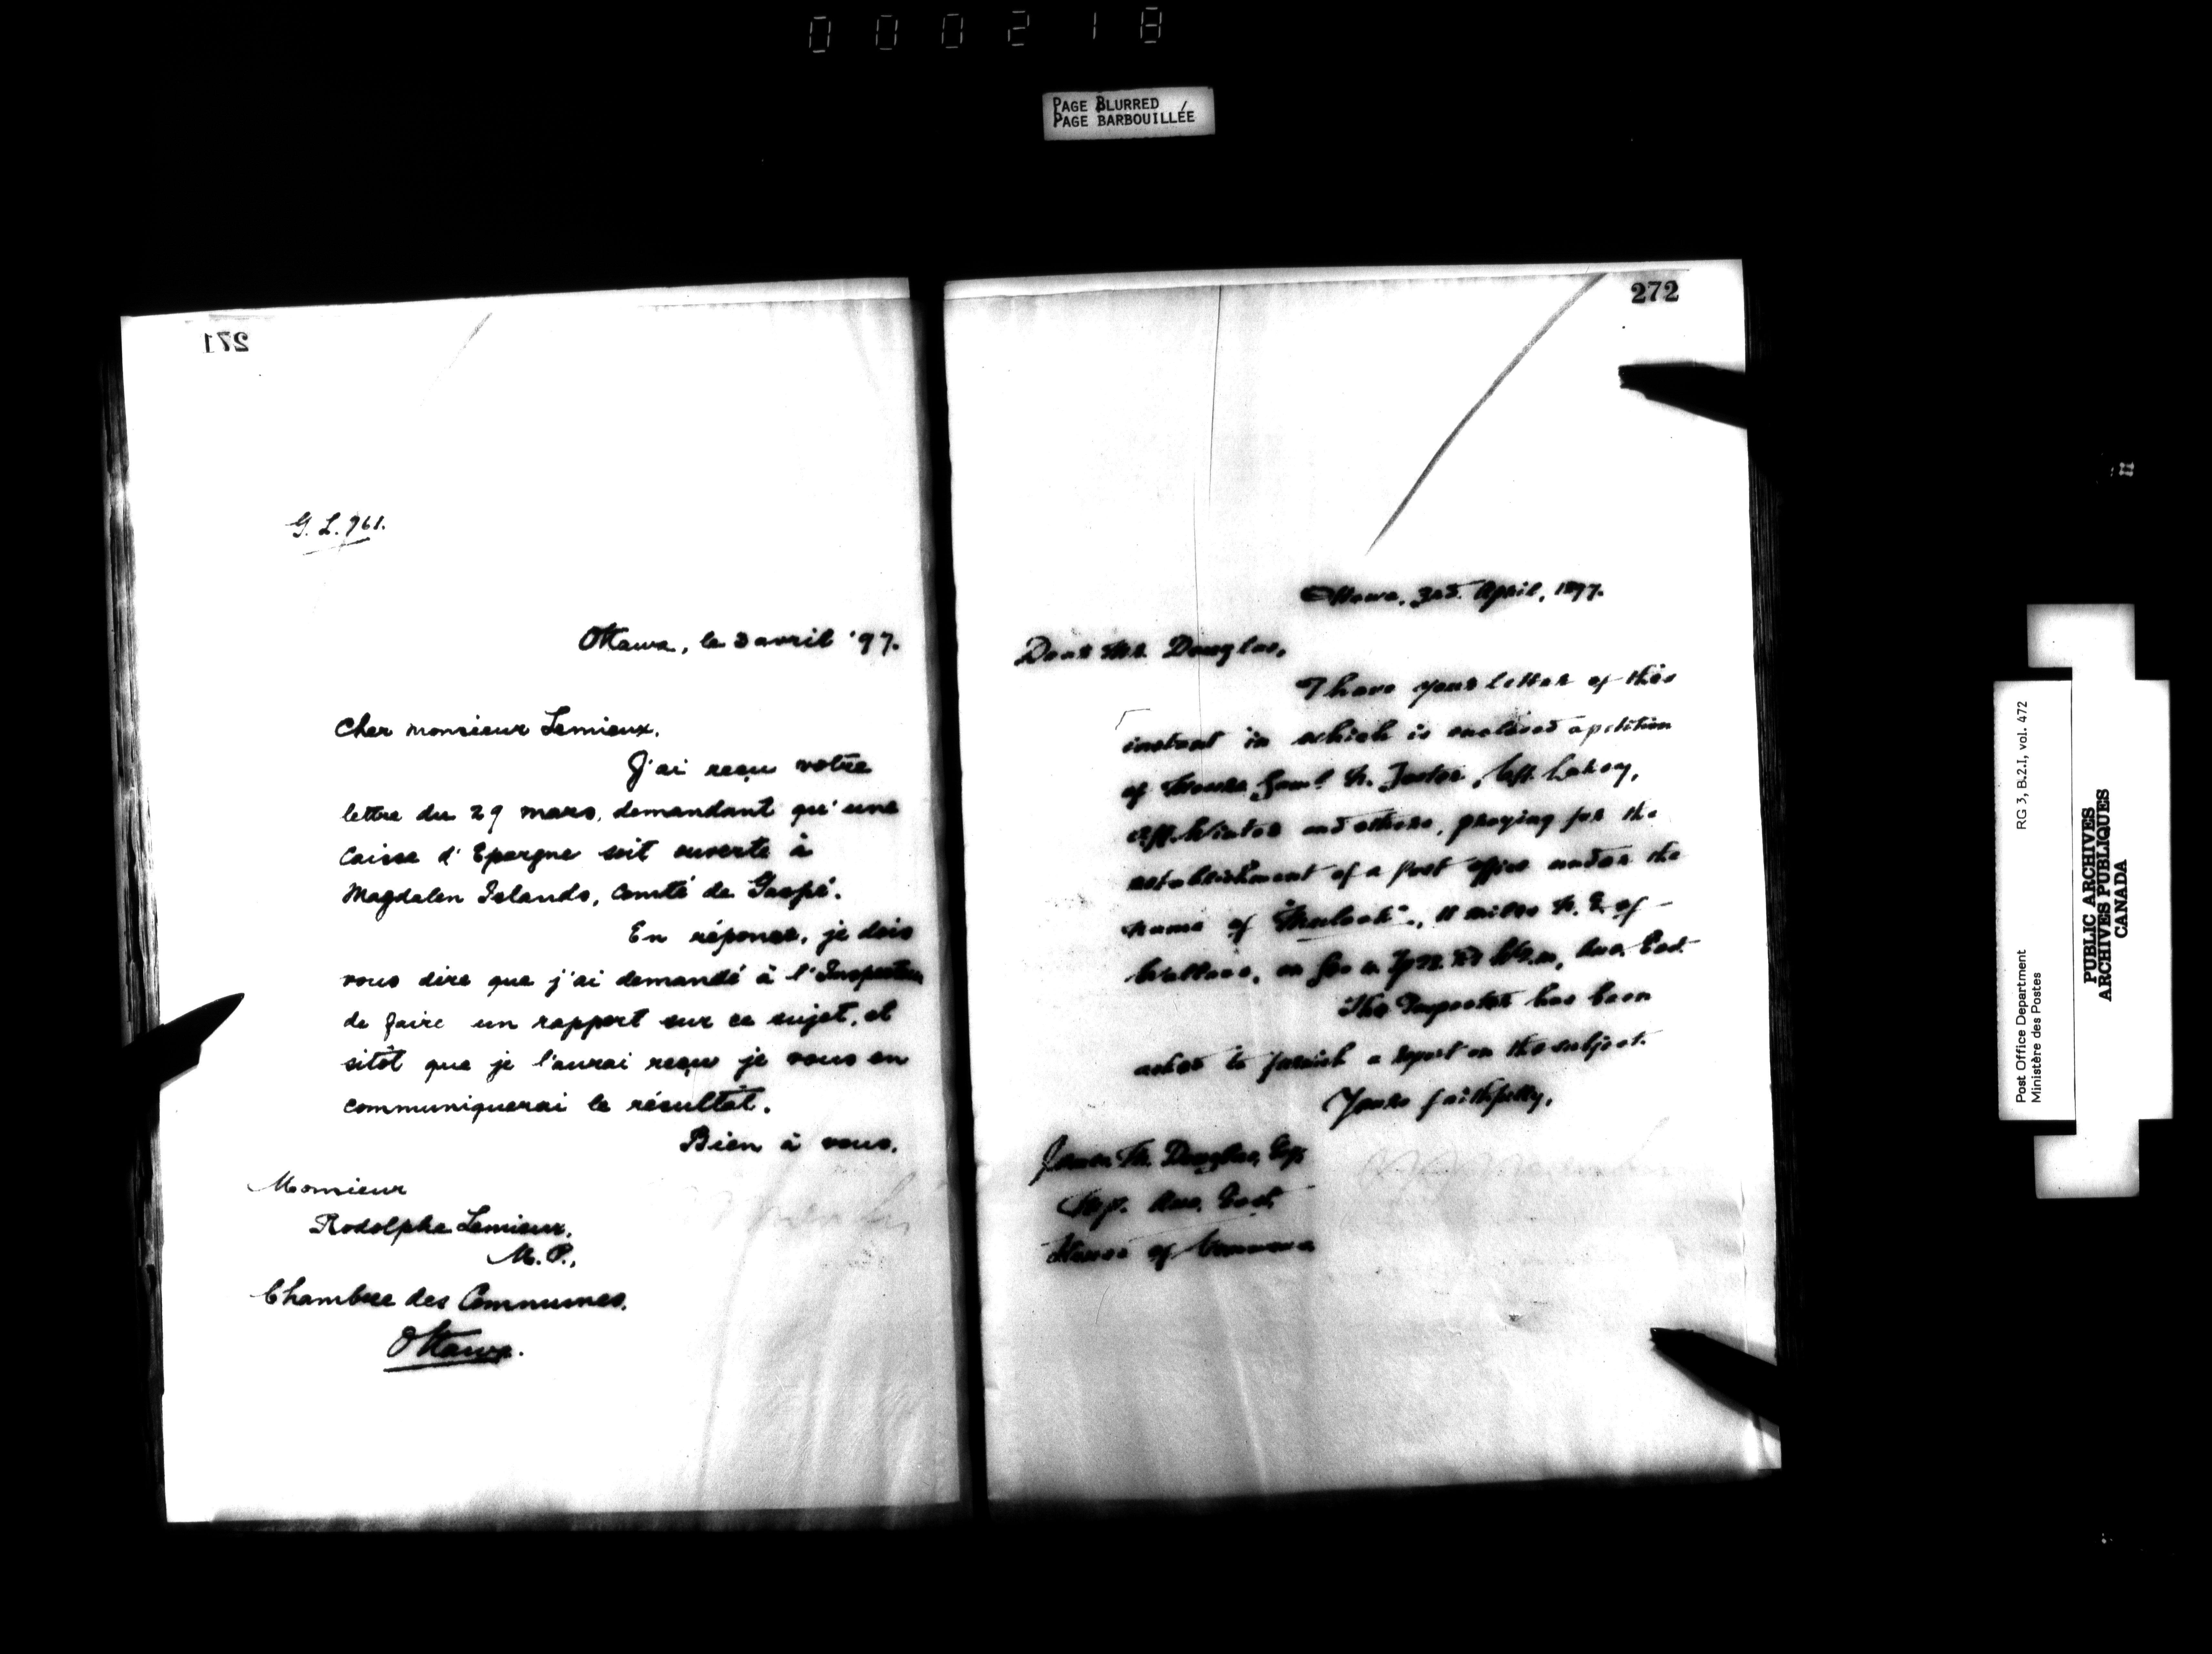 000218
PAGE BLURRED
PAGE BARBOUILLÉE
271
G. L. 961.
Ottawa, le 3 avril '97.
Cher monsieur Lemieux,
J'ai reçu votre
lettre du 29 mars, demandant qu'une
Caisse d'Epargne soit ouverte à
Magdalen Islands, comté de Gaspé.
En réponse, je dois
vous dire que j'ai demandé à l'Inspecteur
de faire un rapport sur ce sujet, et
sitôt que je l'aurai reçu je vous en
communiquerai le résultat.
Bien à vous,
Monsieur
Rodolphe Lemieux,
M. P.,
Chambre des Communes,
Ottawa.
272
Ottawa, 3rd. April, 1897.
Dear Mr. Douglas,
I have your letter of this
instant in which is enclosed a petition
of
and others, praying for the
establishment of a Post Office under the
name of "Mulock", 11 miles N. E. of
The Inspector has been
asked to furnish a report on the subject.
Yours faithfully,
James M. Douglas, Esq.
M.P. Assa. East
House of Commons
Post Office Department RG 3, B.2.I, vol. 472
Ministère des Postes
PUBLIC ARCHIVES
ARCHIVES PUBLIQUES
CANADA